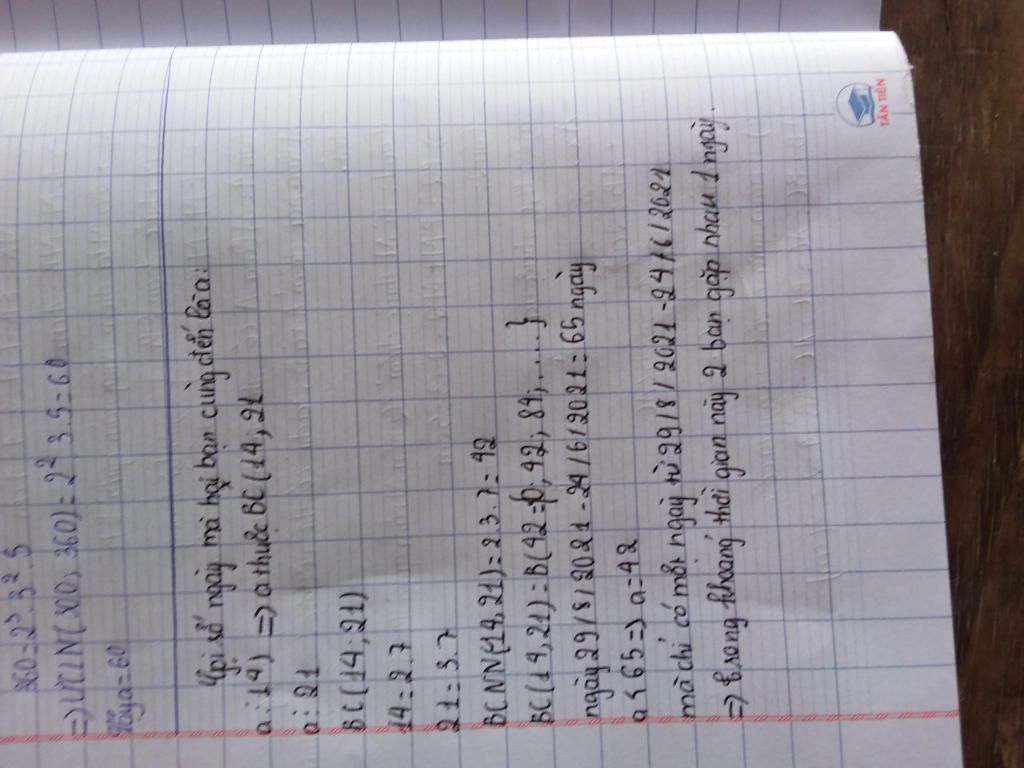 360 = 2³.3².5
=> ƯCLN(300, 360) = 2².3.5 = 60
Vậy a = 60
Gọi số ngày mà hai bạn cùng đến là a:
a ⋮ 14) => a thuộc BC(14, 21
a ⋮ 21
BC(14, 21)
14 = 2.7
21 = 3.7
BCNN(14, 21) = 23.7 = 42
BC(14, 21) = B(42 = 0; 42; 84; .....}
ngày 29/8/2021 - 24/6/2021 = 65 ngày
a < 65 => a = 42
mà chỉ có một ngày từ 29/8/2021 - 24/6/2021
=> trong khoảng thời gian này 2 bạn gặp nhau 1 ngày.
TÂN TIẾN